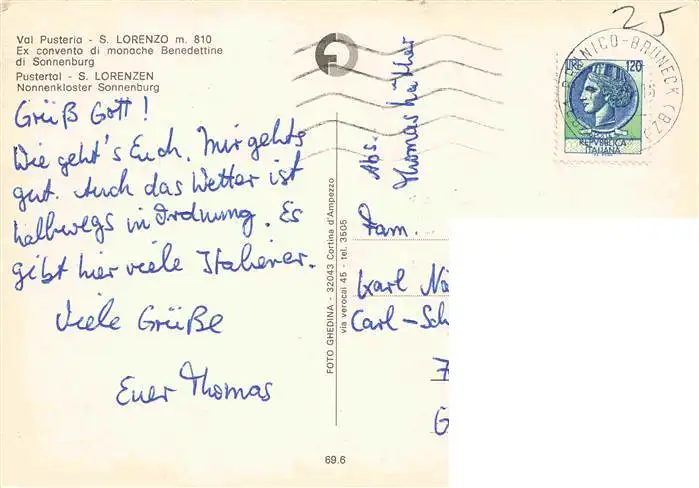 Val Pusteria - S. LORENZO m. 810
Ex convento di monache Benedettine
di Sonnenburg
Pustertal - S. LORENZEN
Nonnenkloster Sonnenburg
Grüß Gott!
Wie geht's Euch. Mir gehts
gut. Auch das Wetter ist
halbwegs in Ordnung. Es
gibt hier viele Italiener.
Viele Grüße
Euer Thomas
FOTO GHEDINA - 32043 Cortina d'Ampezzo
via verocai 45 - tel. 3505
69.6
Abs.
Thomas
Fam.
Karl
Carl-Sch
7
G
25
LIRE 120
REPVBBLICA
ITALIANA
BRUNICO-BRUNECK (BZ)